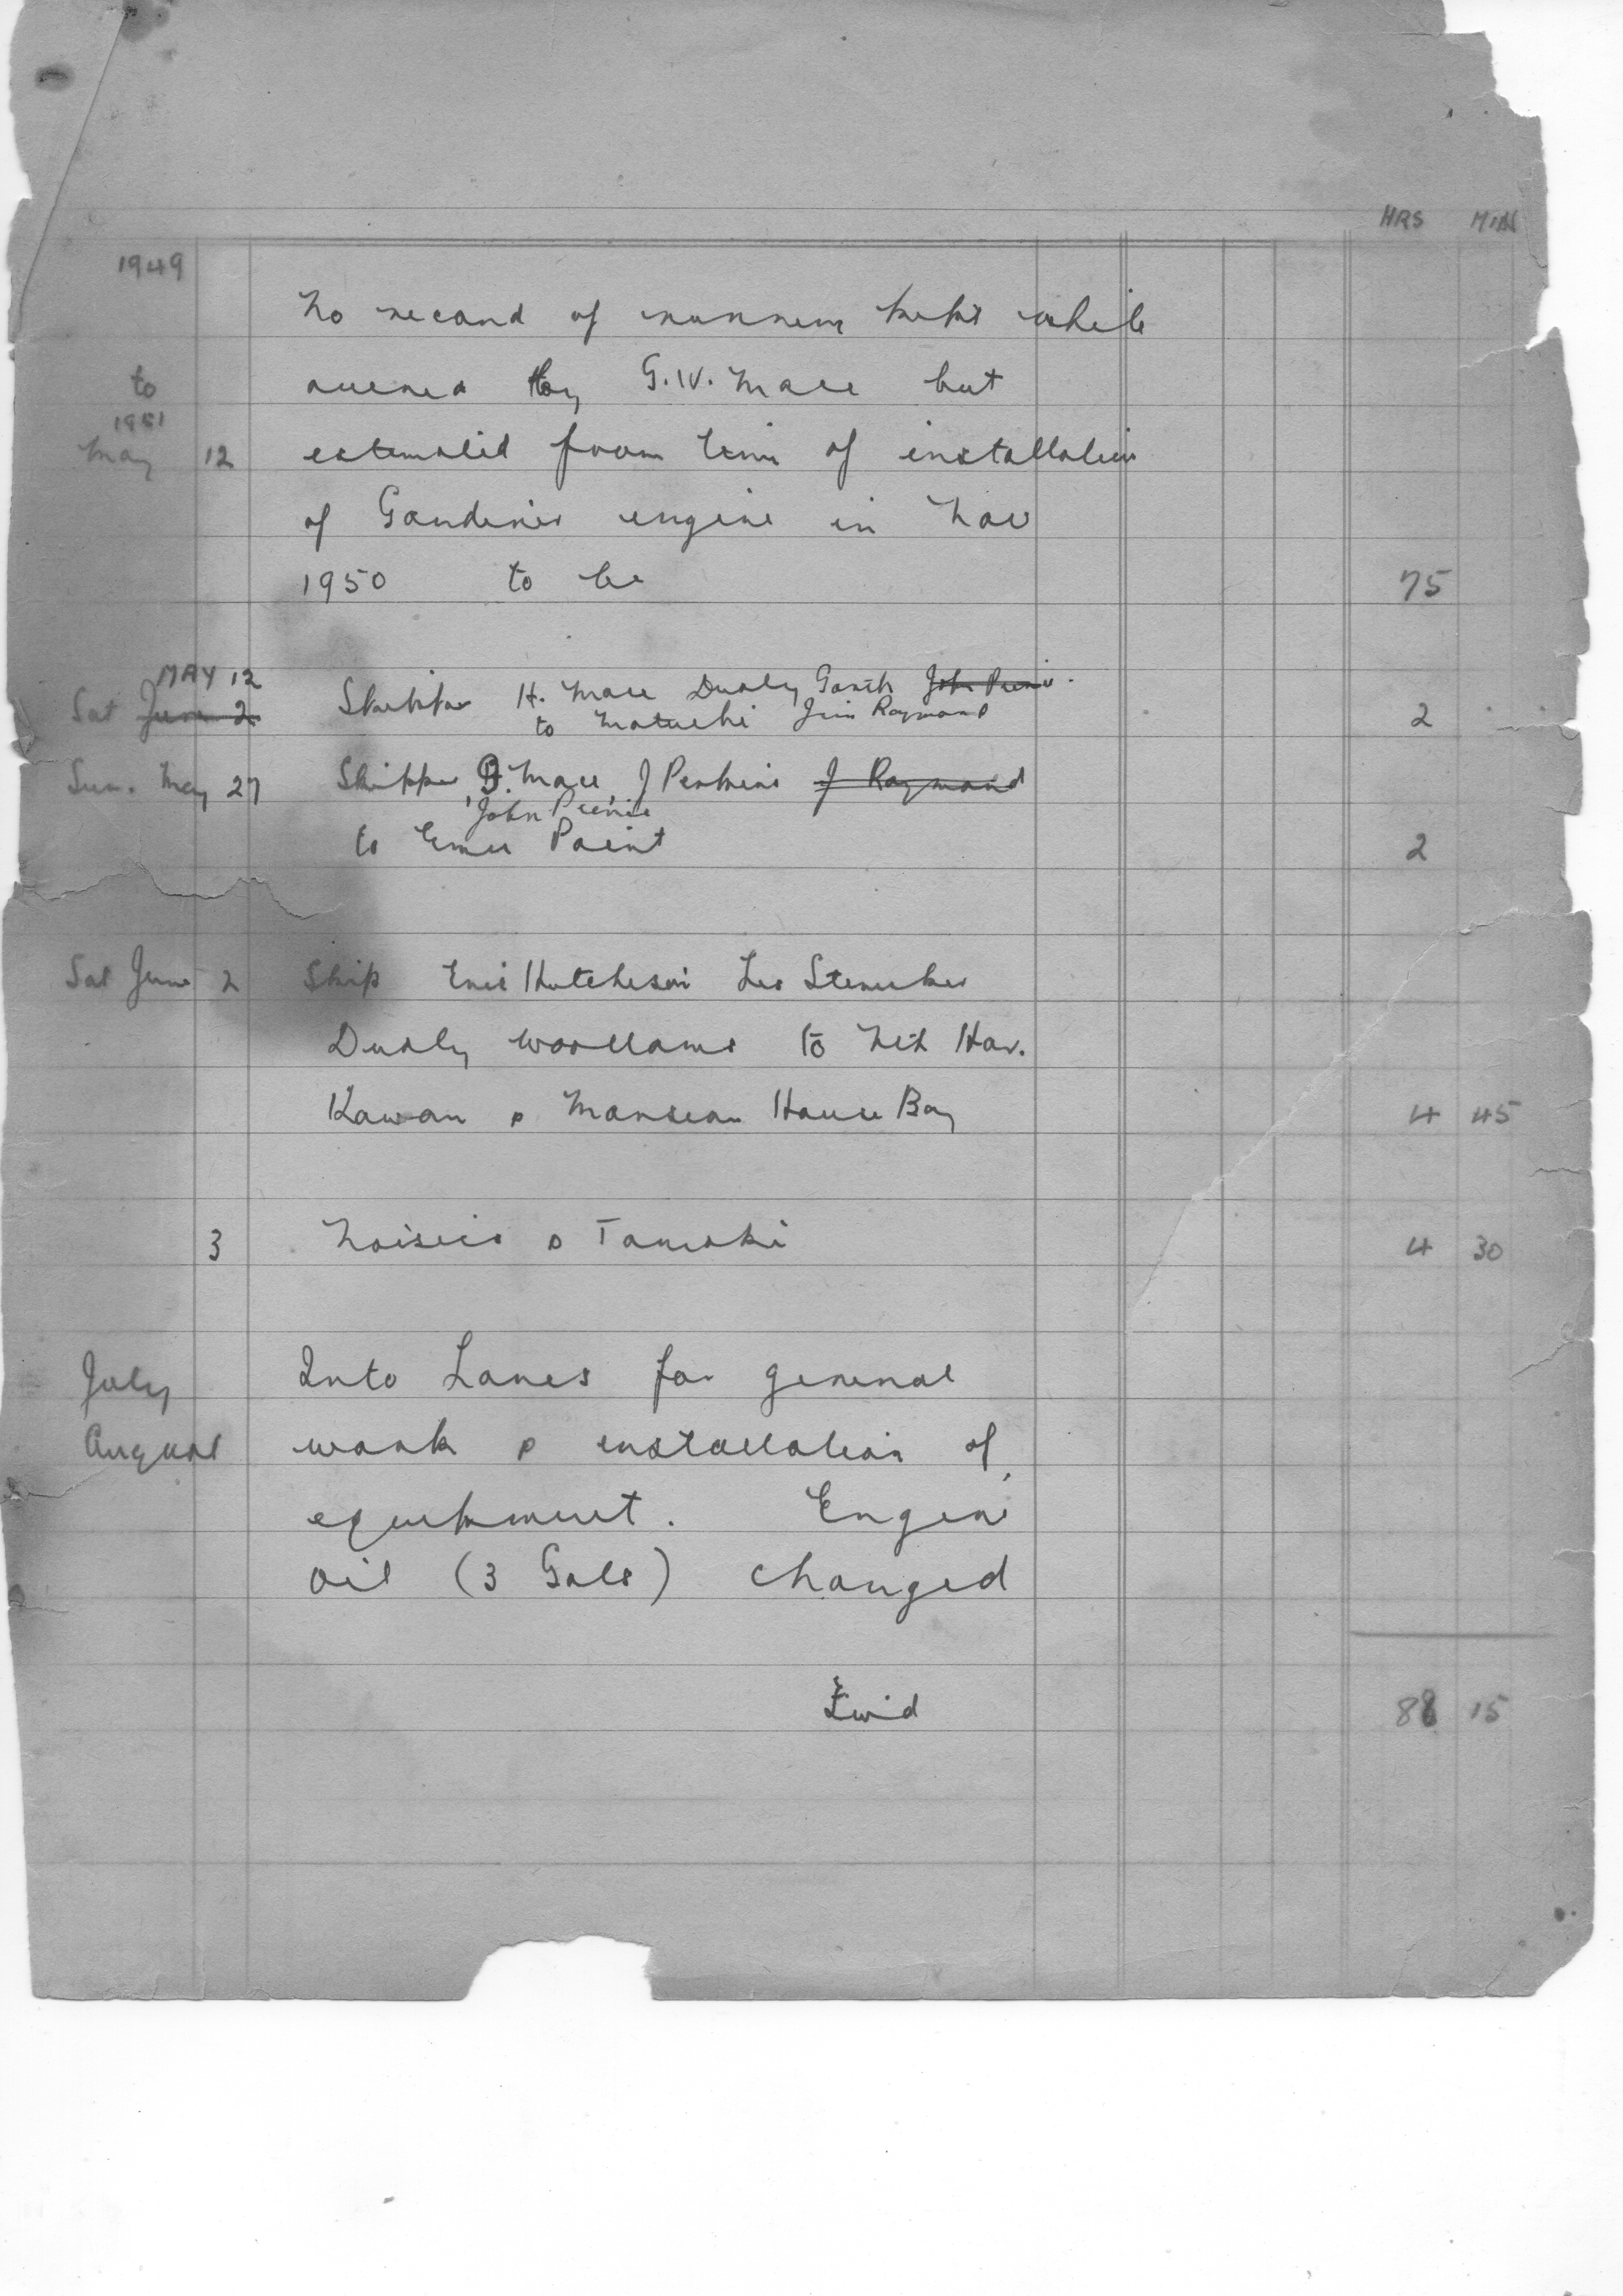 HRS MIN
1949
No record of running kept while
to owned by G.W. Mace but
1951
May 12 estimated from time of installation
of Gardiner engine in Nov
1950 to be 75
MAY 12
Sat June 2 Skipper H. Mace Dudly Garth John Peenie.
to Matuehi Jim Raymond 2
Sun. May 27 Skipper B. Mace, J Perkins J Raymond
John Peenie
to Emu Point 2
Sat June 2 Skip Eric Hutcheson Les
Dudly Woollams to Nth Har.
Kawau & Mansion House Bay 4 45
3 Noises & Tamaki 4 30
July Into Lanes for general
August work & installation of
equipment. Engine
Oil (3 Gals) changed
88 15